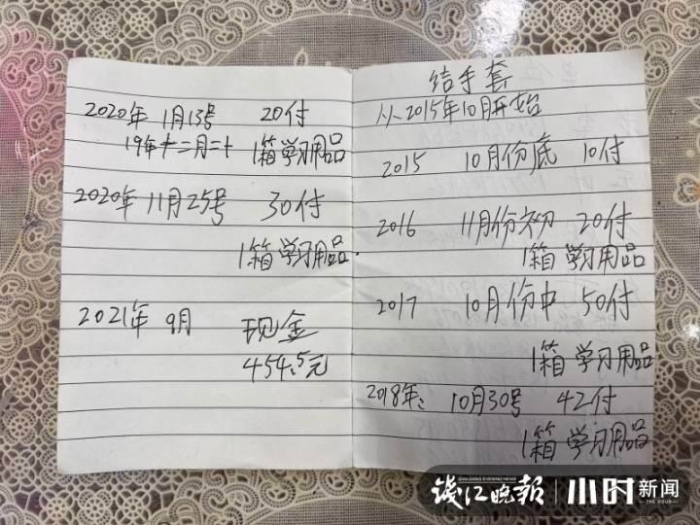 2020年 1月13号 20付
19年十二月二十 1箱学习用品
2020年 11月25号 30付
1箱学习用品.
2021年 9月 现金
454.5元
结手套
从2015年10月开始
2015 10月份底 10付
2016 11月份初 20付
1箱学习用品
2017 10月份中 50付
1箱学习用品
2018年: 10月30号 42付
1箱学习用品
钱江晚报 小时新闻